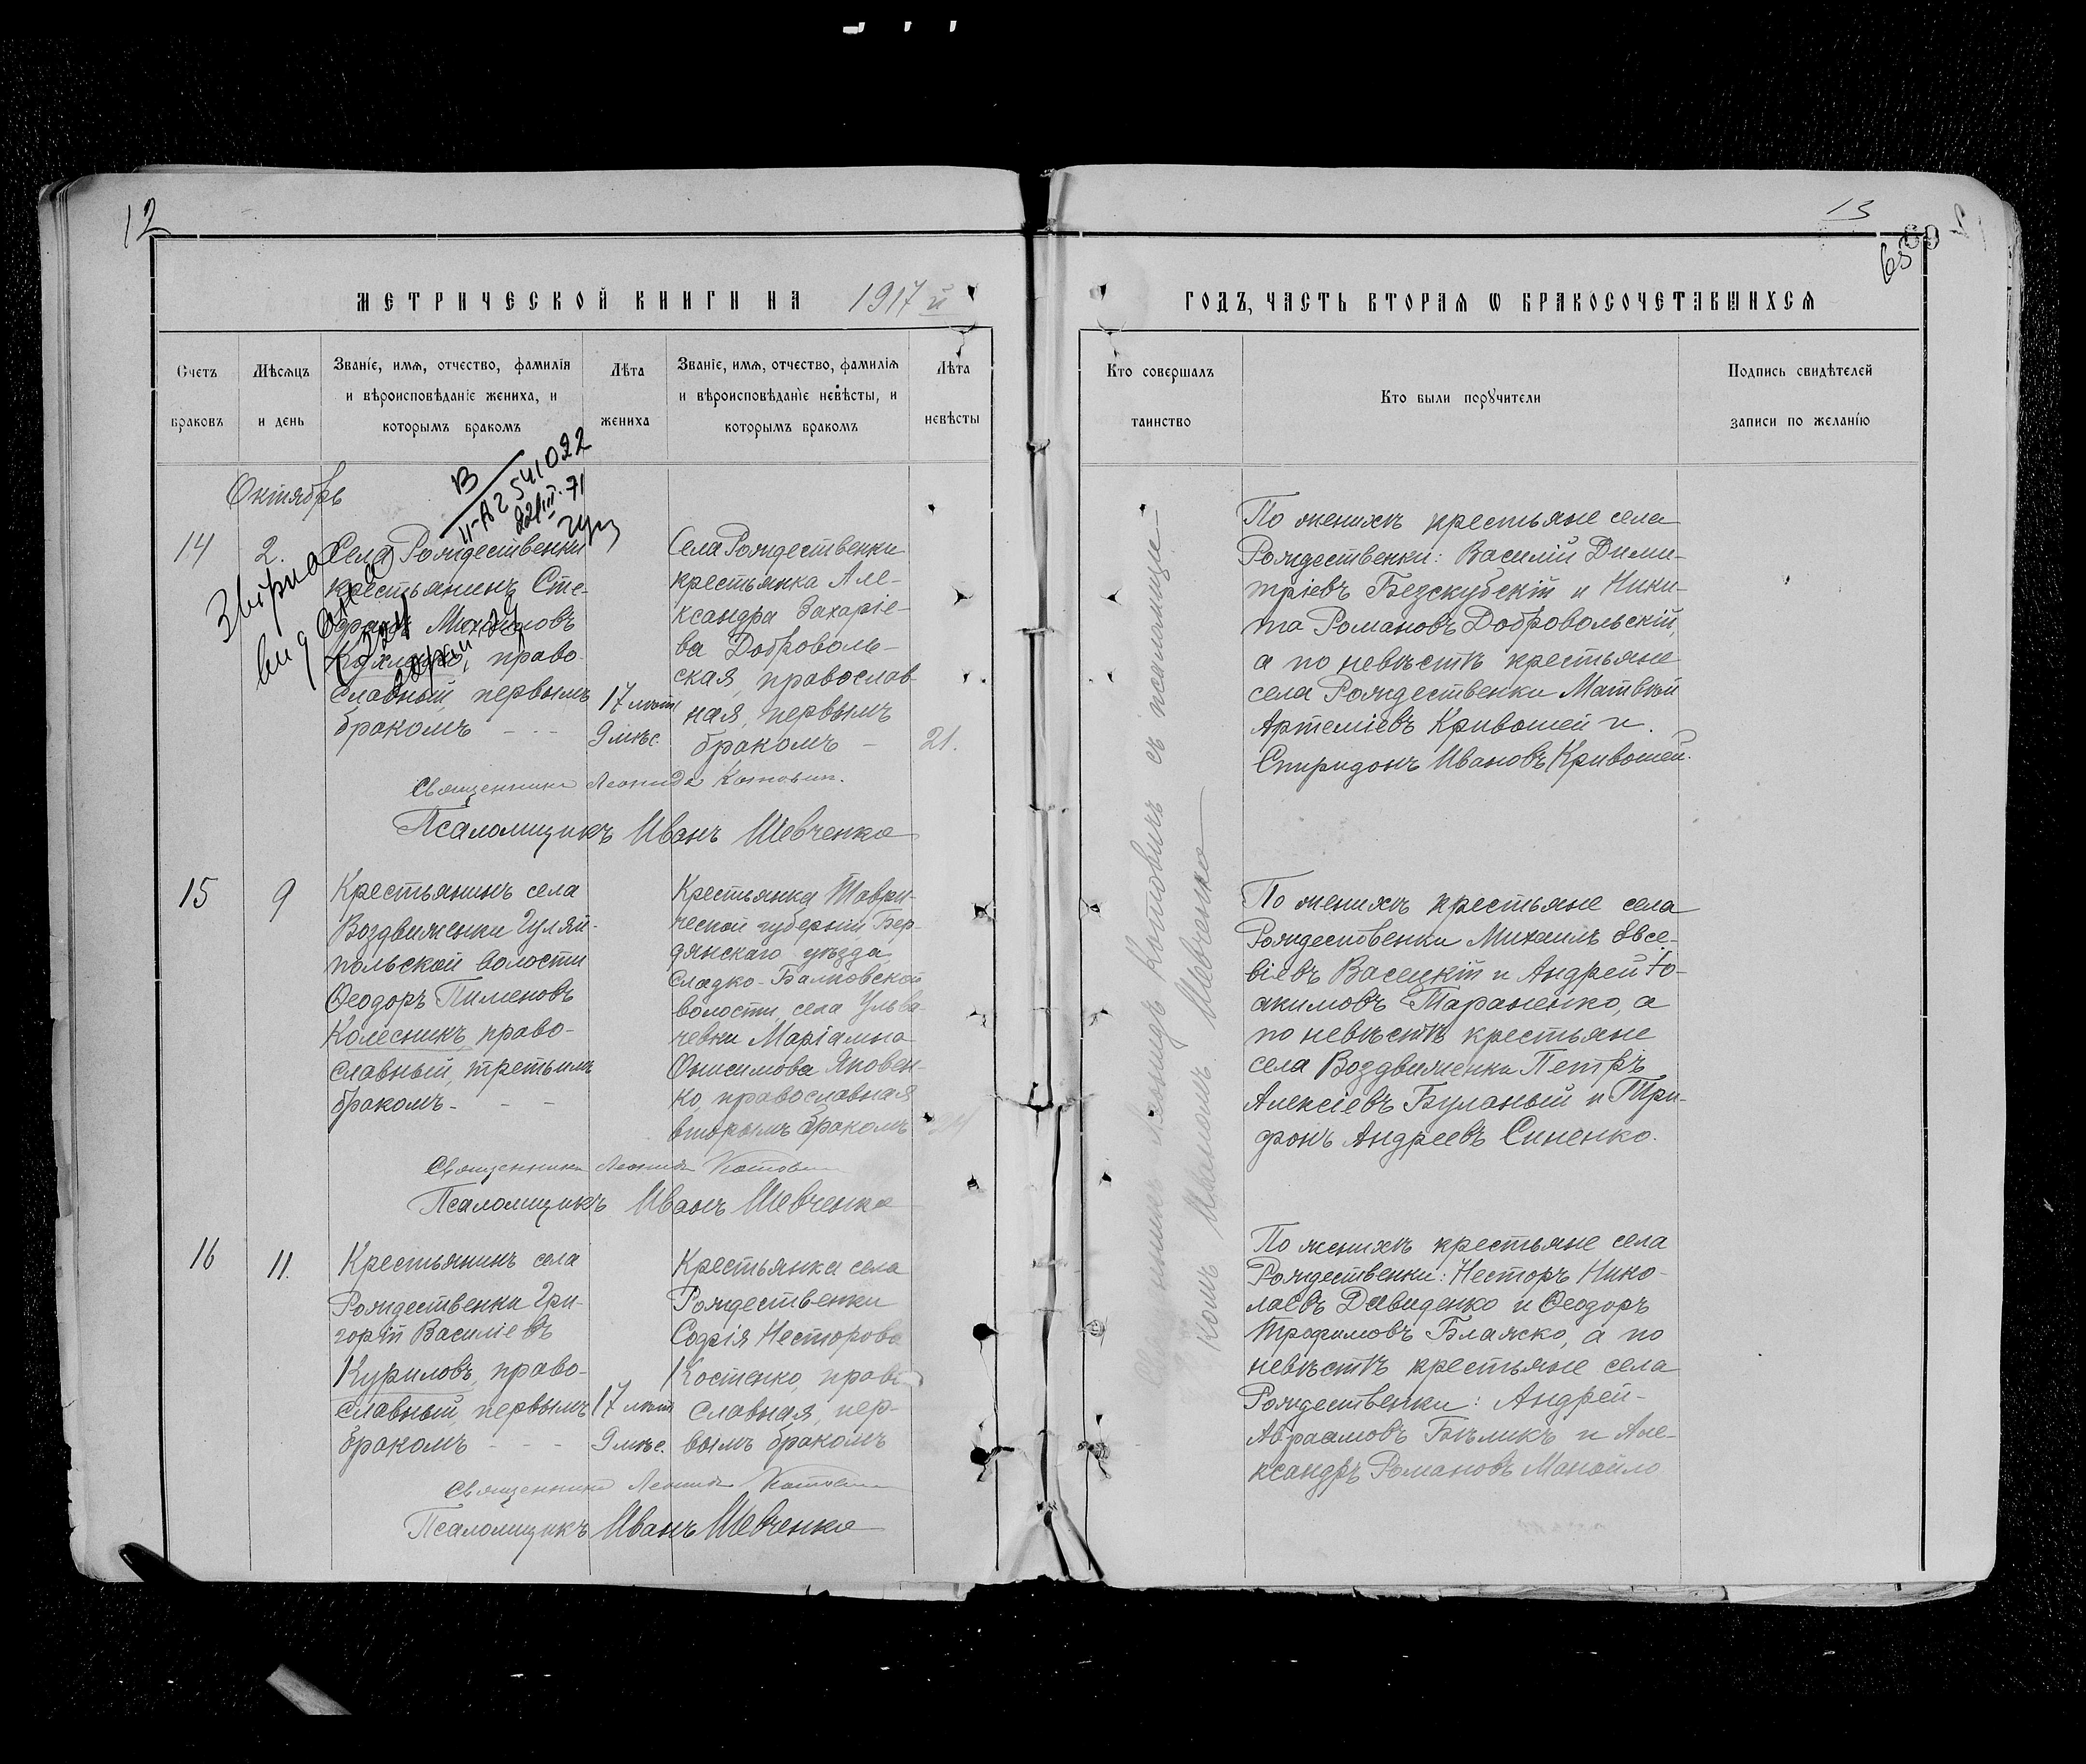 12
МЕТРИЧЕСКОЙ КНИГИ НА 1917 й
Счетъ браковъ
Мѣсяцъ и день
Званіе, имя, отчество, фамилія и вѣроисповѣданіе жениха, и которымъ бракомъ
Лѣта жениха
Званіе, имя, отчество, фамилія и вѣроисповѣданіе невѣсты, и которымъ бракомъ
Лѣта невѣсты
Октябрь
В
II-АГ 541022
22/III.71
14
2.
Села Рождественки
крестьянинъ Сте-
фанъ Михайловъ
право-
славный, первымъ
бракомъ - - -
17 лѣтъ
9 мѣс.
Села Рождественки
крестьянка Але-
ксандра Захаріе-
ва Доброволь-
ская, православ-
ная, первымъ
бракомъ -
21.
Священникъ Леонидъ Котовичъ.
Псаломщикъ Иванъ Шевченко
15
9
Крестьянинъ села
Воздвиженки Гуляй-
польской волости
Ѳеодоръ Пименовъ
Колесникъ, право-
славный, третьимъ
бракомъ - - -
Крестьянка Таври-
ческой губерніи Бер-
дянскаго уѣзда
Сладко-Балковской
волости, села
Маріамна
Онисимова Яковен-
ко, православная
вторымъ бракомъ
24
Священникъ Леонидъ Котович
Псаломщикъ Иванъ Шевченко
16
11.
Крестьянинъ села
Рождественки Гри-
горій Василіевъ
Куриловъ, право-
славный, первымъ
бракомъ - - -
17 лѣтъ
9 мѣс.
Крестьянка села
Рождественки
Софія Несторова
Костенко, право-
славная, пер-
вымъ бракомъ
Священникъ Леонидъ Котович
Псаломщикъ Иванъ Шевченко
13
65
ГОДЪ, ЧАСТЬ ВТОРАЯ Ѡ БРАКОСОЧЕТАВШИХСЯ
Кто совершалъ таинство
Кто были порꙋчители
Подпись свидѣтелей записи по желанію
Священникъ Леонидъ Котовичъ съ псаломщи-
комъ Иваномъ Шевченко
По женихѣ крестьяне села
Рождественки: Василій Дими-
тріевъ Безскубскій и Ники-
та Романовъ Добровольскій,
а по невѣстѣ крестьяне
села Рождественки Матвѣй
Артеміевъ Кривошей и
Спиридонъ Ивановъ Кривошей.
По женихѣ крестьяне села
Рождественки Михаилъ Евсе-
віевъ Васецкій и Андрей Іо-
акимовъ Тараненко, а
по невѣстѣ крестьяне
села Воздвиженки Петръ
Алексіевъ Буланый и Три-
фонъ Андреевъ Синенко.
По женихѣ крестьяне села
Рождественки: Несторъ Нико-
лаевъ Давиденко и Ѳеодоръ
Трофимовъ Блажко, а по
невѣстѣ крестьяне села
Рождественки: Андрей
Авраамовъ Бѣликъ и Але-
ксандръ Романовъ Манойло